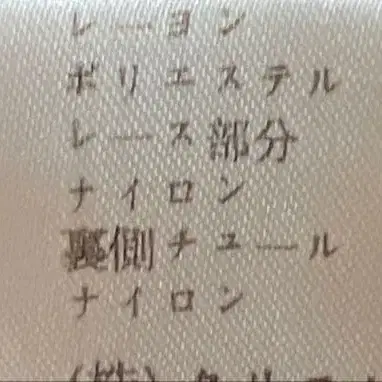 レーヨン
ポリエステル
レース部分
ナイロン
裏側チュール
ナイロン